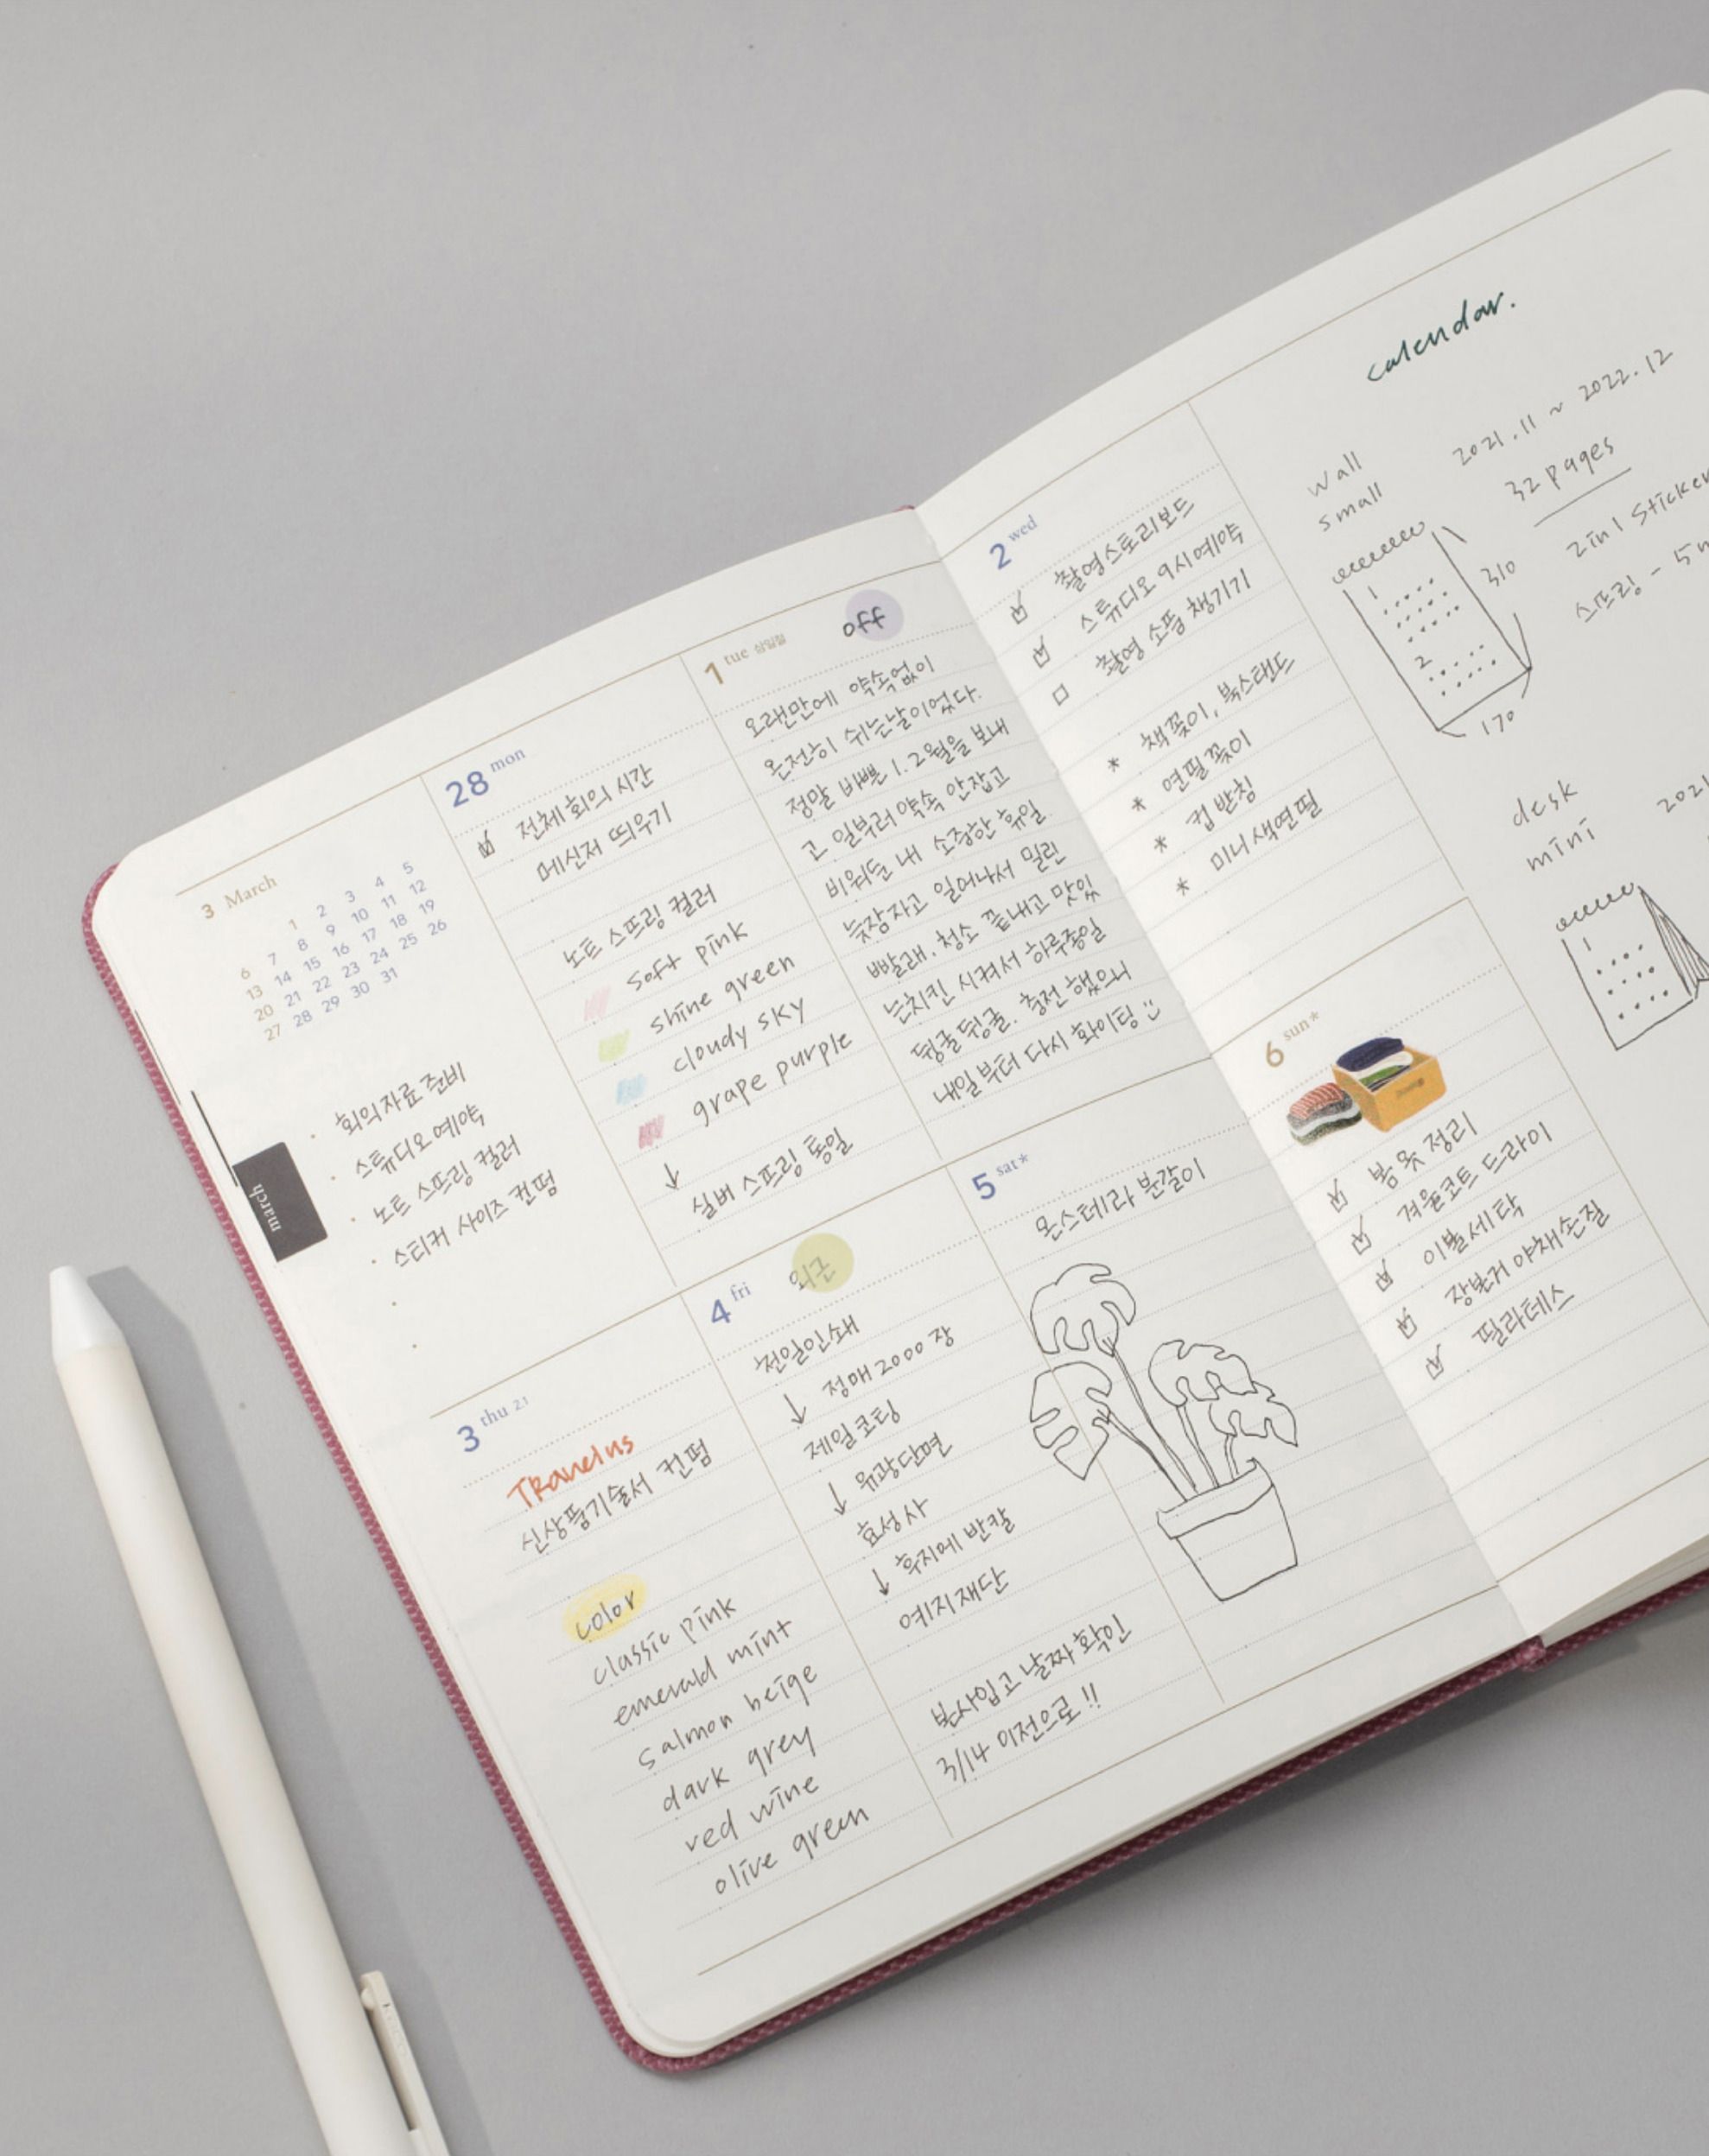 3 March
1 2 3 4 5
6 7 8 9 10 11 12
13 14 15 16 17 18 19
20 21 22 23 24 25 26
27 28 29 30 31
· 회의자료 준비
· 스튜디오 예약
· 노트 스프링 컬러
· 스티커 사이즈 컨펌
·
·
march
28 mon
전체 회의 시간
메신저 띄우기
노트 스프링 컬러
soft pink
shine green
cloudy sky
grape purple
↓
실버 스프링 통일
1 tue 삼일절
off
오랜만에 약속없이
온전히 쉬는날이었다.
정말 바쁜 1.2월을 보내
고 일부러 약속 안잡고
비워둔 내 소중한 휴일
늦잠자고 일어나서 밀린
빨래. 청소 끝내고 맛있
는치킨 시켜서 하루종일
뒹굴뒹굴. 충전 했으니
내일부터 다시 화이팅 :)
3 thu 2.1
Travelus
신상품기술서 컨펌
color
classic pink
emerald mint
salmon beige
dark grey
red wine
olive green
4 fri
외근
전일인쇄
↓ 정매 2000 장
제일코팅
↓ 유광단면
효성사
↓ 후지에 반칼
예지재단
박사입고 날짜 확인
3/14 이전으로!!
5 sat*
몬스테라 분갈이
2 wed
촬영스토리보드
스튜디오 9시예약
촬영 소품 챙기기
* 책꽂이, 북스탠드
* 연필꽂이
* 컵 받침
* 미니 색연필
6 sun*
봄 옷 정리
겨울코트 드라이
이불세탁
장본거 야채손질
필라테스
calendar.
wall
small
2021.11 ~ 2022.12
32 pages
2in1 sticker
스프링 - 5
1
2
310
170
desk
mini
2021
1